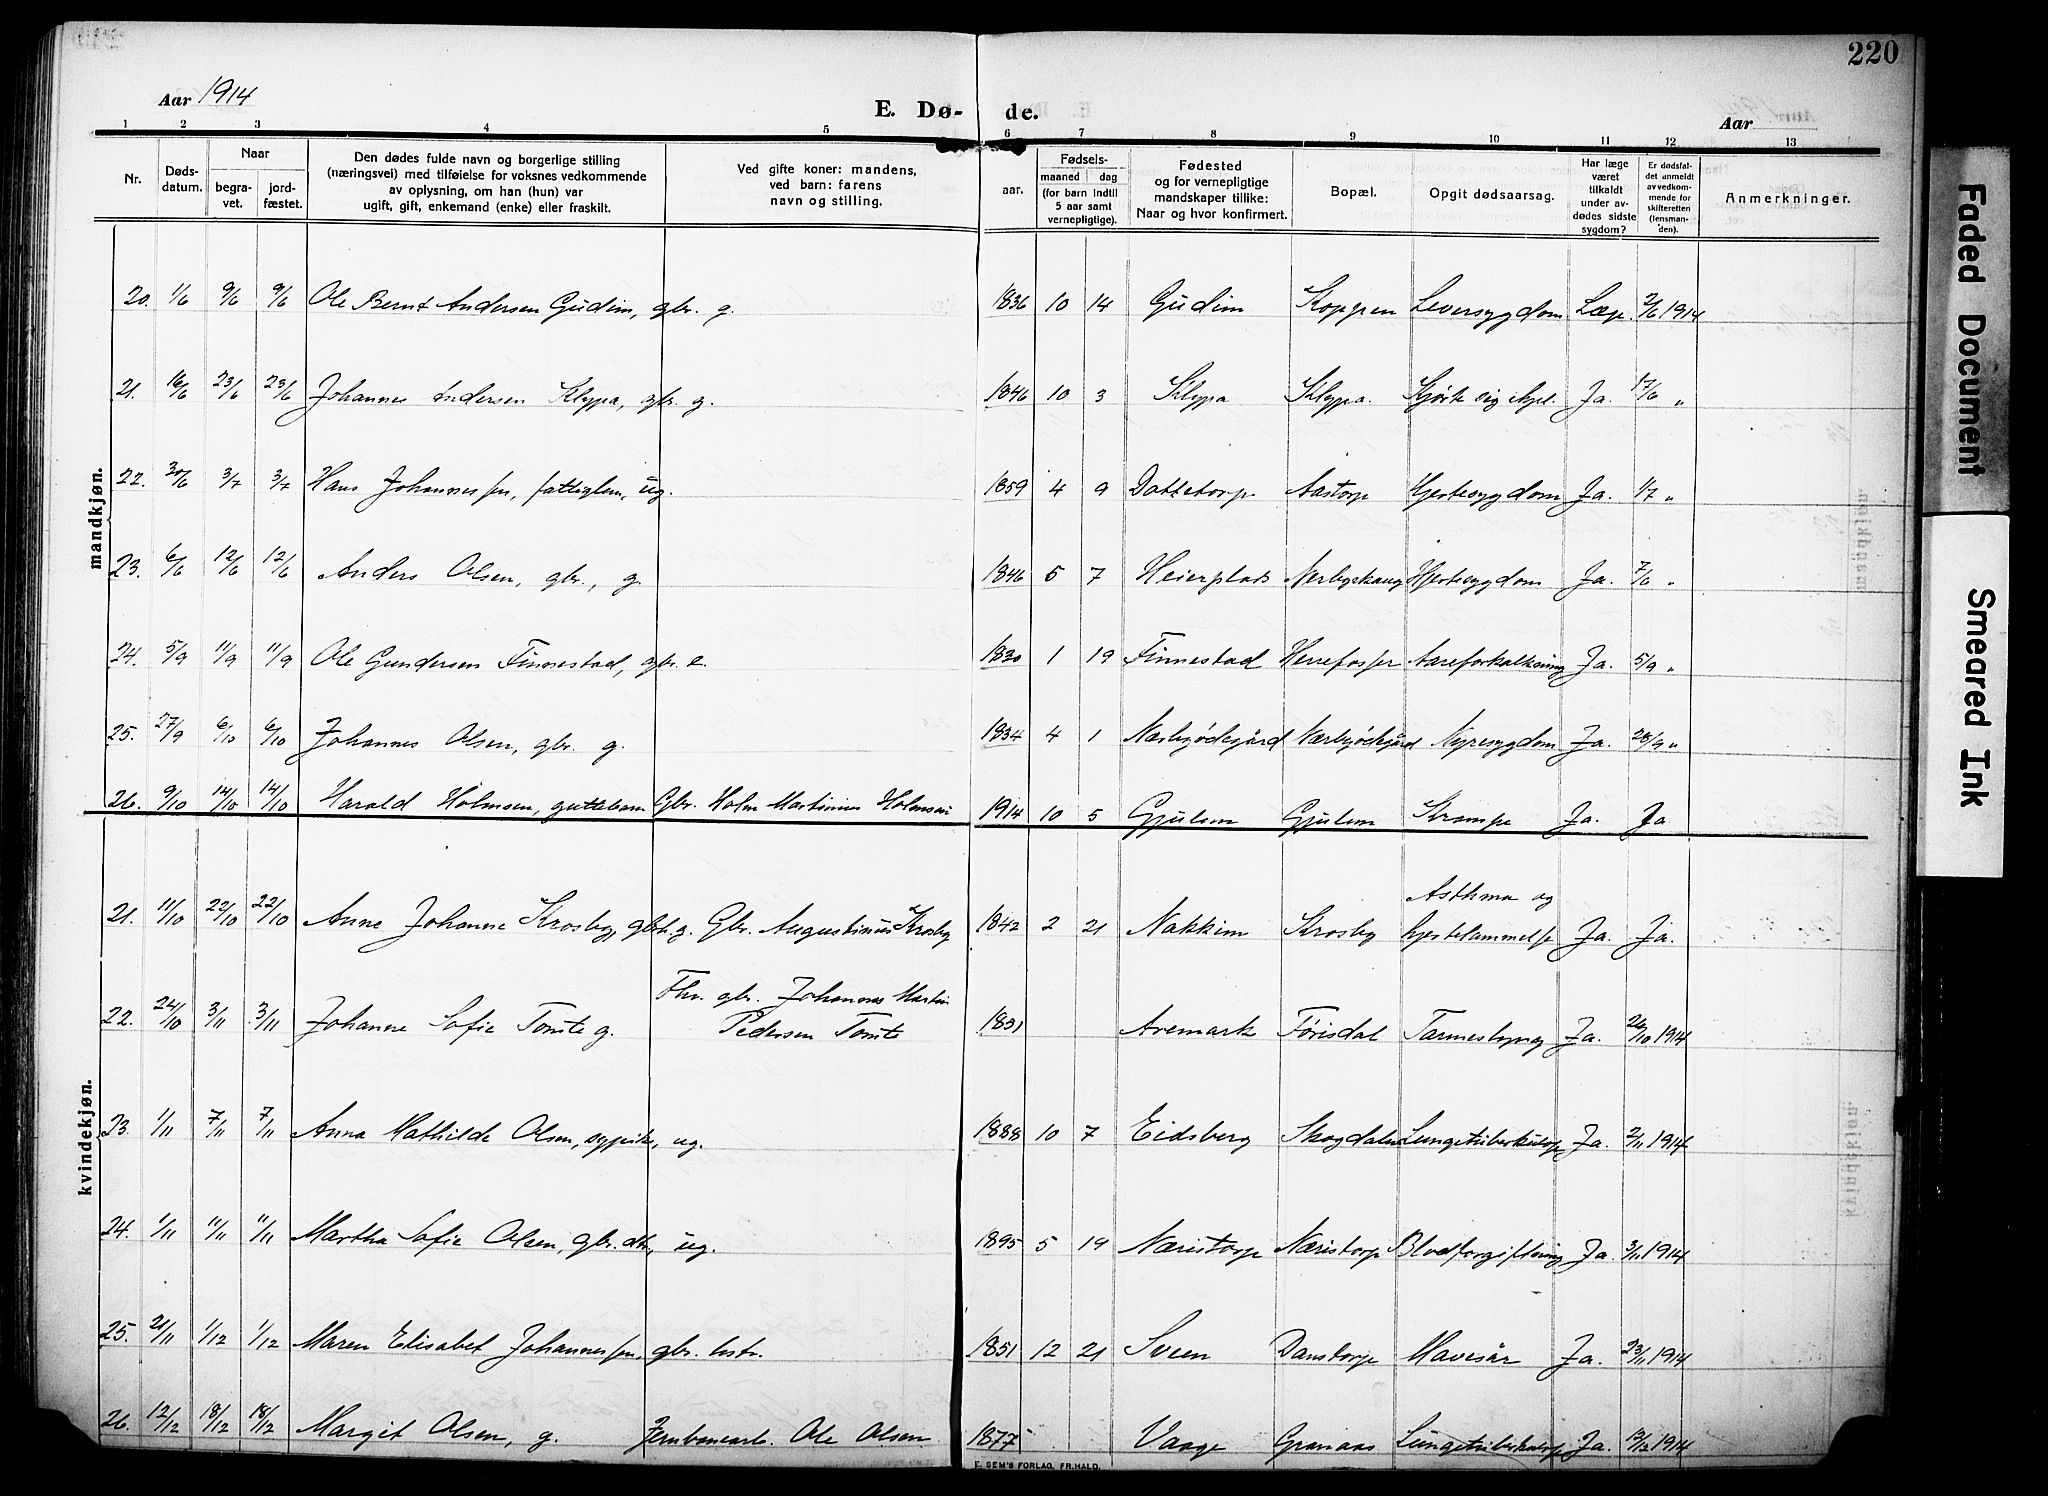 220
Aar 1914
E. Dø- de.
Aar
1 2 3 4 5 6 7 8 9 10 11 12 13
Nr.
Dødsdatum.
Naar
begravet.
jordfæstet.
Den dødes fulde navn og borgerlige stilling
(næringsvei) med tilføielse for voksnes vedkommende
av oplysning, om han (hun) var
ugift, gift, enkemand (enke) eller fraskilt.
Ved gifte koner: mandens,
ved barn: farens
navn og stilling.
aar.
Fødsels-
maaned dag
(for barn indtil
5 aar samt
vernepligtige).
Fødested
og for vernepligtige
mandskaper tillike:
Naar og hvor konfirmert.
Bopæl.
Opgit dødsaarsag.
Har læge
været
tilkaldt
under av-
dødes sidste
sygdom?
Er dødsfal-
det anmeldt
av vedkom-
mende for
skifteretten
(lensman-
den).
Anmerkninger.
mandkjøn.
20. 1/6 9/6 9/6 Ole Bernt Andersen Gudim, gbr. g. 1836 10 14 Gudim Koppen Leversygdom Læge. 2/6 1914
21. 16/6 23/6 23/6 Johannes Andersen Klypa, gbr. g. 1846 10 3 Klypa Klypa. Skjørte sig ihjel. Ja. 17/6 "
22. 30/6 3/7 3/7 Hans Johannessen, fattiglem, ug. 1859 4 9 Dattetorp Aastorp Hjertesygdom Ja. 1/7 "
23. 6/6 12/6 12/6 Anders Olsen, gbr., g. 1846 5 7 Heierplads Nerbyskaug Hjertesygdom Ja. 7/6 "
24. 5/9 11/9 11/9 Ole Gundersen Finnestad, gbr. e. 1830 1 19 Finnestad Herrefosser Aareforkalkning Ja. 5/9 "
25. 27/9 6/10 6/10 Johannes Olsen, gbr. g. 1834 4 1 Nærbyødegård Nærbyødegård Nyresygdom Ja. 28/9 "
26. 9/10 14/10 14/10 Harald Holmsen, guttebarn Gbr. Holm Martinius Holmsen 1914 10 5 Gjulem Gjulem Krampe Ja. Ja
kvindekjøn.
21. 11/10 22/10 22/10 Anne Johanne Krosby, gbrk. g. Gbr. Augustinus Krosby 1842 2 21 Nakkim Krosby Asthma og
hjertelammelse Ja. Ja.
22. 24/10 3/11 3/11 Johanne Sofie Tomte g. Fhv. gbr. Johannes Martin
Pedersen Tomte 1851 Aremark Førisdal Tarmeslyng Ja. 26/10 1914
23. 1/11 7/11 7/11 Anna Mathilde Olsen, sypike, ug. 1888 10 7 Eidsberg Skogdalen Lungetuberkulose Ja. 2/11 1914
24. 1/11 11/11 11/11 Martha Sofie Olsen, gbr. dtr., ug. 1895 5 19 Næristorp Næristorp Blodforgiftning Ja. 3/11 1914
25. 21/11 1/12 1/12 Maren Elisabet Johannessen, gbr. hstr. 1851 12 21 Sveen Danstorp Mavesår Ja. 23/11 1914
26. 12/12 18/12 18/12 Margit Olsen, g. Jernbanearb. Ole Olsen 1877 Vaage Granaas Lungetuberkulose Ja. 12/12 1914
E. SEM'S FORLAG, FR.HALD.
Faded Document
Smeared Ink